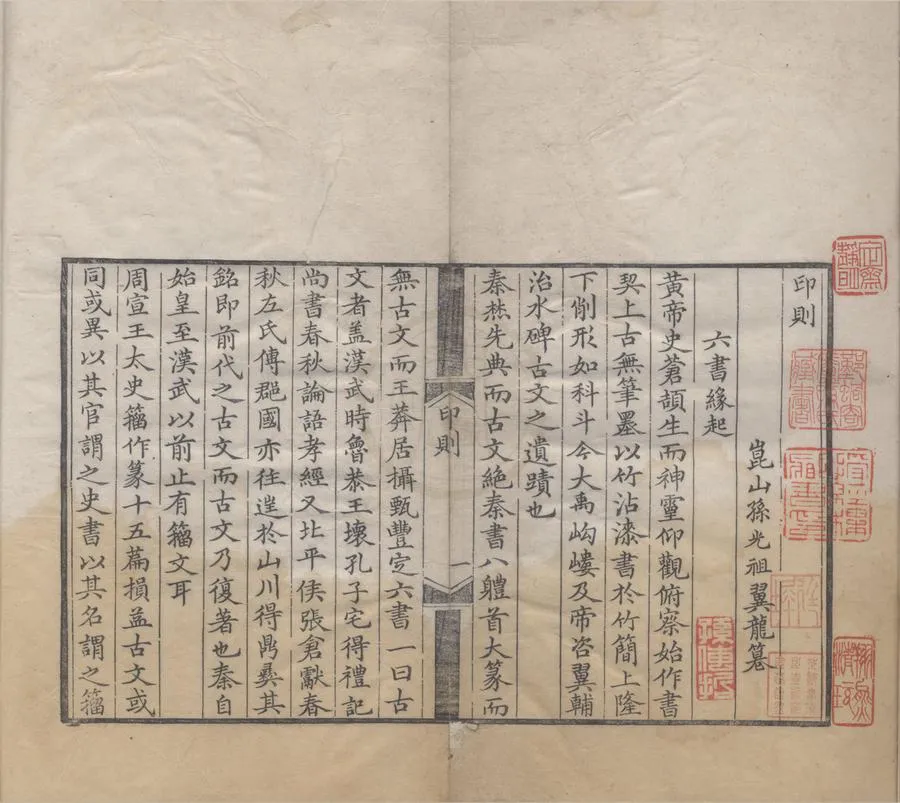 印則
崑山孫光祖翼龍篹
六書緣起
黃帝史蒼頡生而神靈仰觀俯察始作書
契上古無筆墨以竹沾漆書於竹簡上隆
下削形如科斗今大禹岣嶁及帝咨翼輔
治水碑古文之遺蹟也
秦焚先典而古文絶秦書八軆首大篆而
印則
一
無古文而王莽居攝甄豐定六書一曰古
文者盖漢武時魯恭王壞孔子宅得禮記
尚書春秋論語孝經又北平侯張倉獻春
秋左氏傳郡國亦往往於山川得鼎彝其
銘即前代之古文而古文乃復著也秦自
始皇至漢武以前止有籀文耳
周宣王太史籀作篆十五篇損益古文或
同或異以其官謂之史書以其名謂之籀